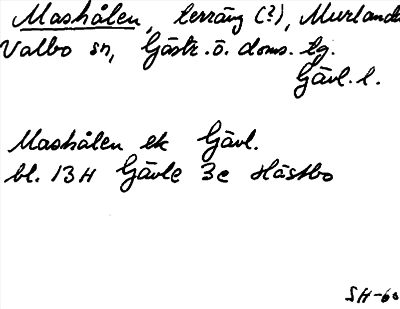 Mashålen, terräng (?), Murlanda
Valbo sn, Gästr. ö. doms. tg.
Gävl. l.
Mashålen ek Gävl.
bl. 13H Gävle 3c Hästbo
SH-60